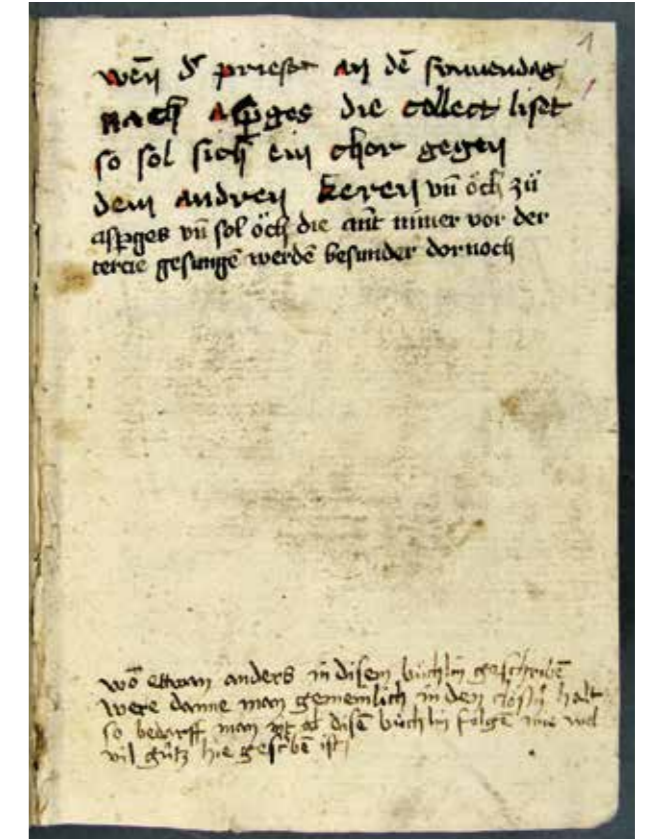 1
wēn dˢ priester an dē sunnendag
nach asꝑges die collect liset
so sol sich ein chor gegen
dem andren keren vn̄ öch zü
asꝑges vn̄ sol öch die ant̄ nimer vor der
tercie gesungē werdē besunder dornoch
wō ettwan anders in disem büchlin geschribē
were danne man gemeinlich in den halt
so bedarff man nit disē büchlin folgē wie wol
vil gütz hie gescʳbē ist